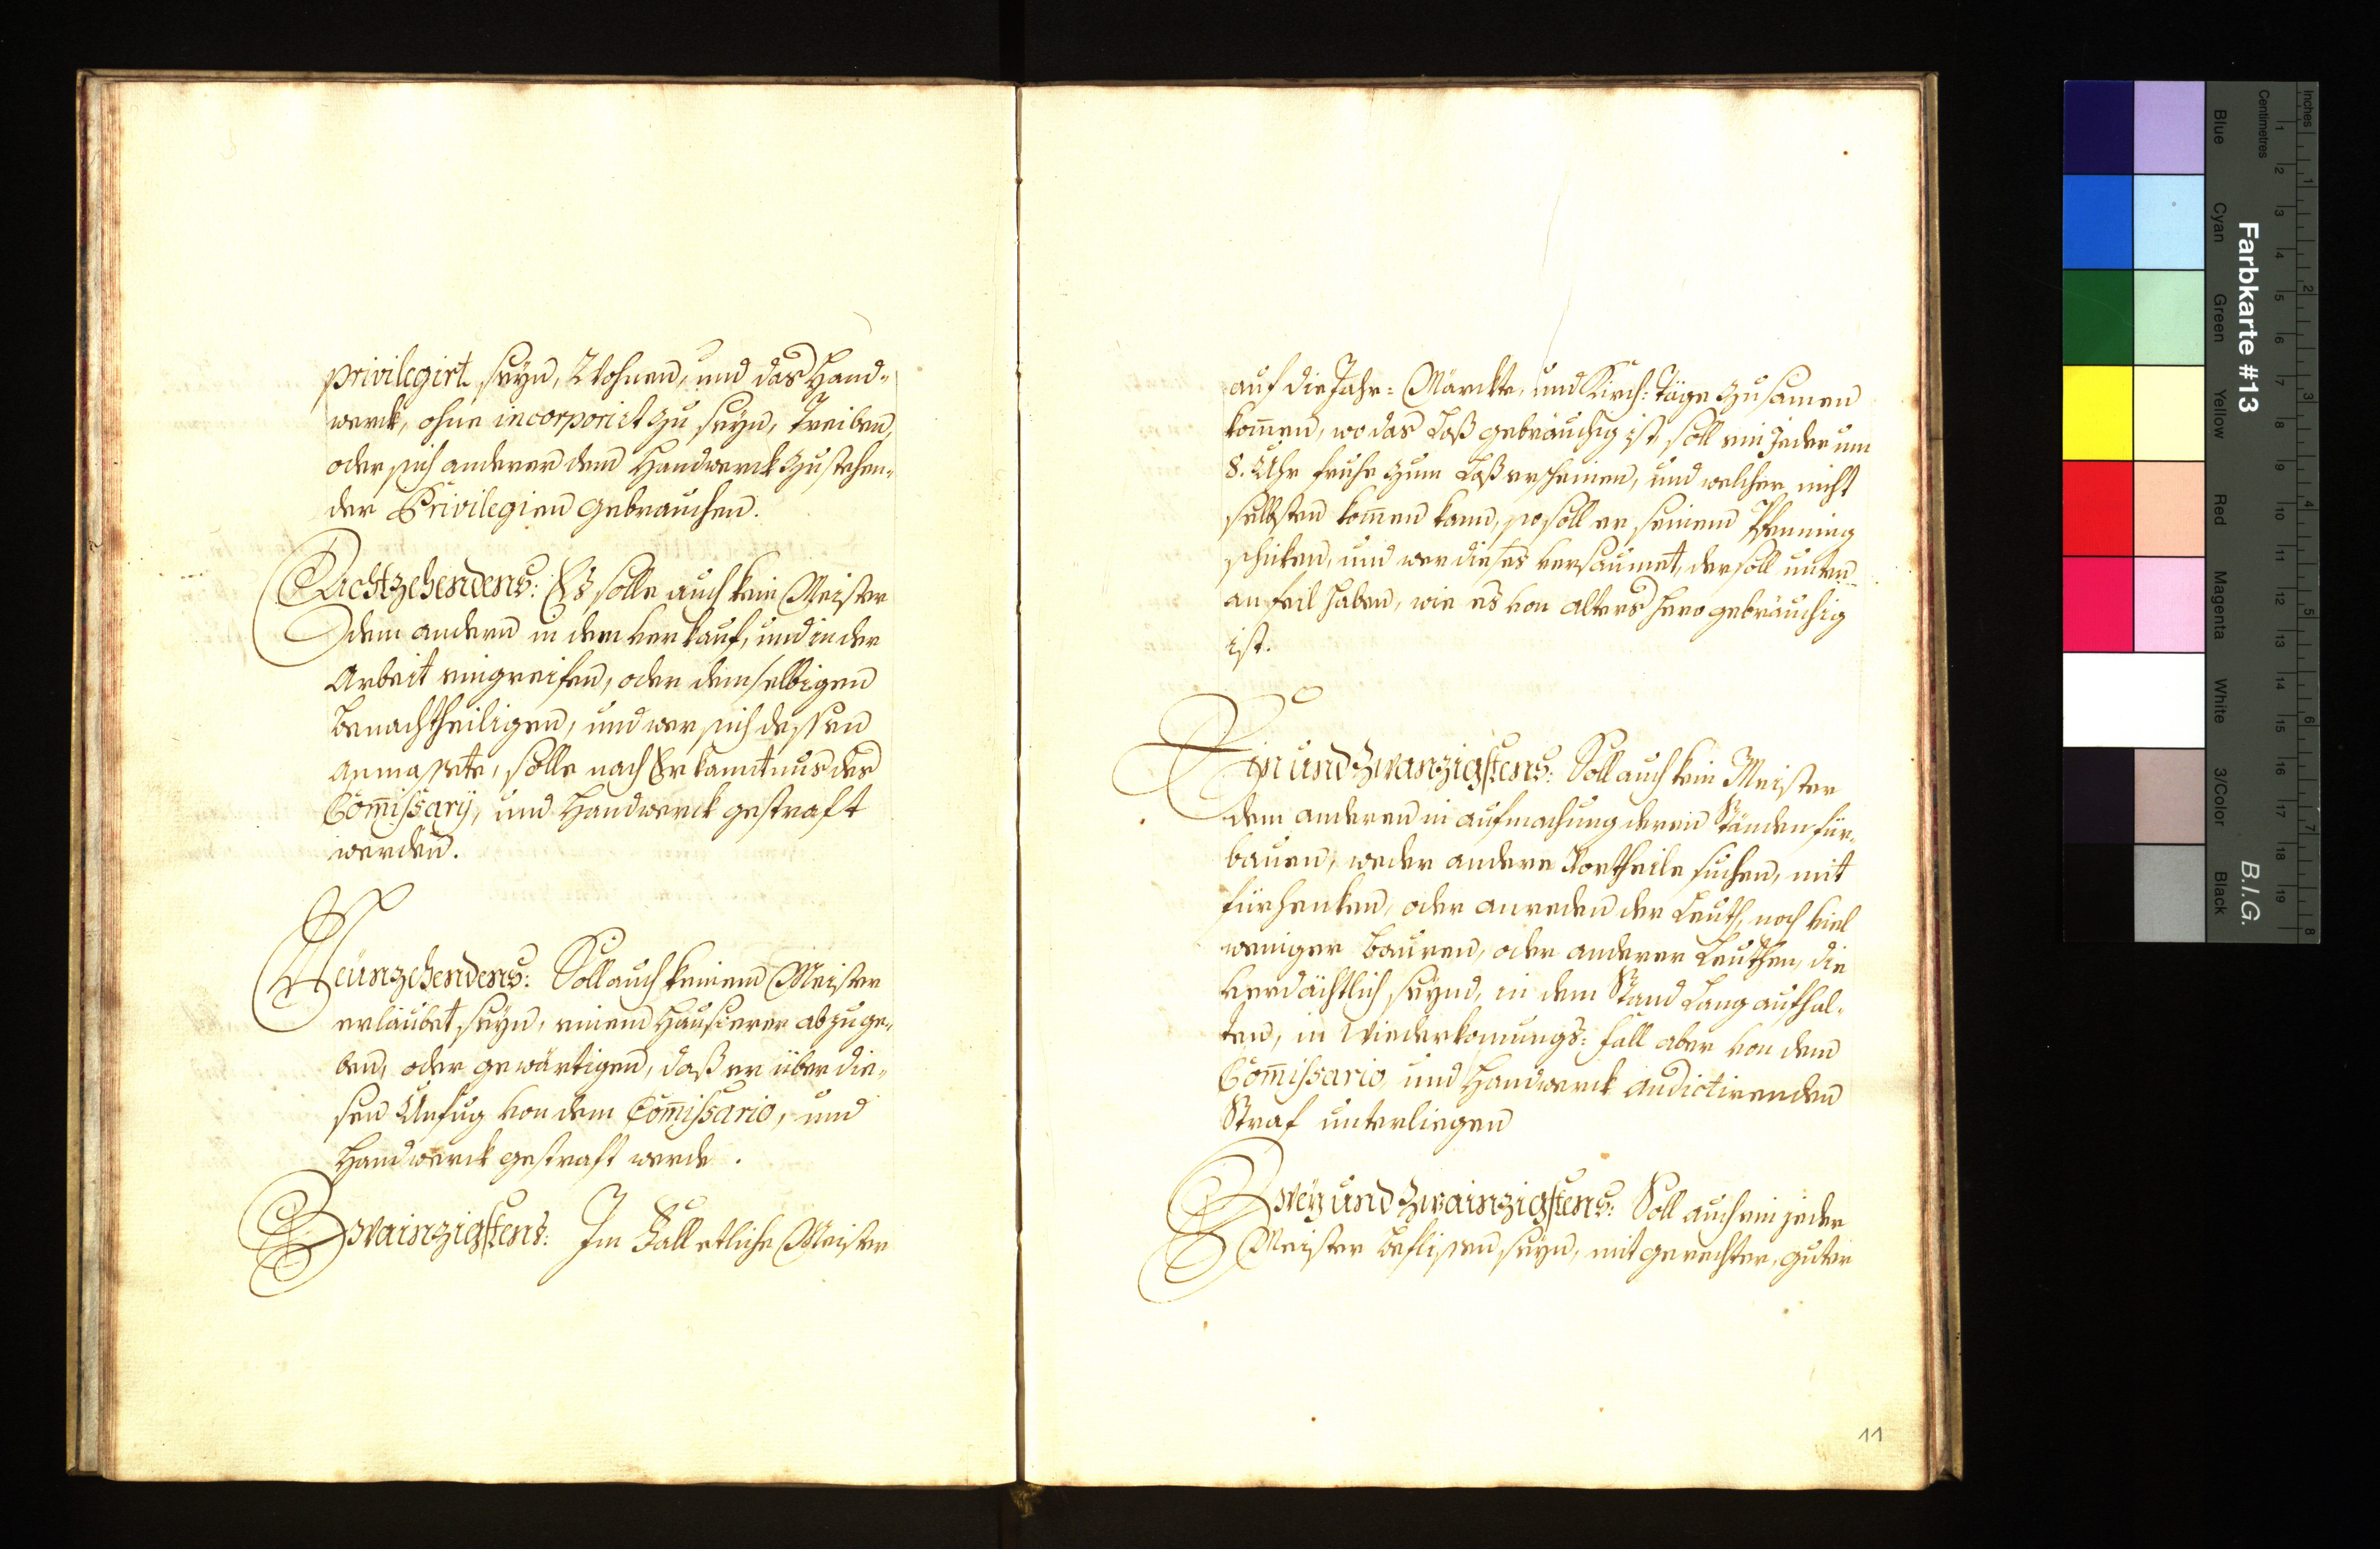 privilegirt seyn, Wohnen, und das Hand-
werck, ohne incorporirt zu seyn, Treiben,
oder sich anderer dem Handwerck zustehen-
der Privilegien gebrauchen.
Achtzehendens: Es solle auch kein Meister
dem andern in dem verkauf, und in der
Arbeit eingreifen, oder demselbigen
benachtheiligen, und wer sich dessen
anmassete, solle nach Erkanntnus des
Com̄issarÿ, und Handwerck gestraft
werden.
Neünzehendens: Soll auch keinem Meister
erlaubet seyn, einem Hausierer abzuge-
ben, oder gewärtigen, daß er über die-
sen Unfug von dem Com̄issario, und
Handwerck gestraft werde.
Zwainzigstens: Im Fall etliche Meister
auf die Jahr= Märckte, und Kirch= Täge zusamen
kom̄en, wo das Loß gebräuchig ist, soll ein Jeder um
8. Uhr fruhe zum Loß erscheinen, und welcher nicht
selbsten kom̄en kann, so soll er seinem Pfenning
schicken, und wer dieses versaumet, der soll unten
an feil haben, wie es von alters hero gebräuchig
ist.
Ein und Zwanzigstens: Soll auch kein Meister
dem anderen in aufmachung deren Ständen für-
bauen, weder andere Vortheile suchen, mit
fürhenken, oder anreden der Leuth, noch viel
weniger Bauren, oder anderer Leuthen, die
verdächtlich seynd, in dem Stand Lang aufhal-
ten, in Wiederkomungs= fall aber von dem
Com̄issario, und Handwerck andictirenden
Straf unterliegen
Zweÿ und Zwainzigstens: Soll auch ein jeder
Meister beflissen seyn, mit gerechter, guter
11
Inches
Centimetres
1
2
3
4
5
6
7
8
9
10
11
12
13
14
15
16
17
18
19
1
2
3
4
5
6
7
8
Farbkarte #13
B.I.G.
Blue
Cyan
Green
Yellow
Red
Magenta
White
3/Color
Black